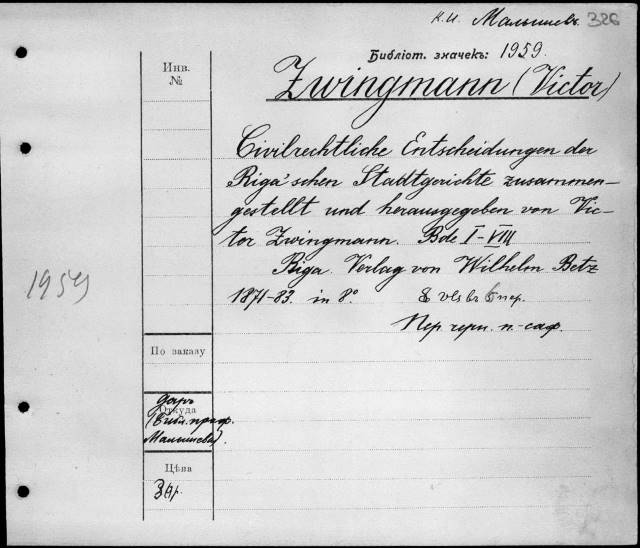 К.И. Малышевъ. 326
Библіот. значекъ: 1959.
Инв.
№
Zwingmann (Victor)
Civilrechtliche Entscheidungen der
Riga'schen Stadtgerichte zusammen-
gestellt und herausgegeben von Vic-
tor Zwingmann. Bde I-VIII
Riga. Verlag von Wilhelm Betz
1959
1871-83. in 8° 8 vls въ 6 пер.
Пер. черн. п.-саф.
По заказу
Даръ
Откуда
(Библ. проф.
Малышева).
Цѣна
р.